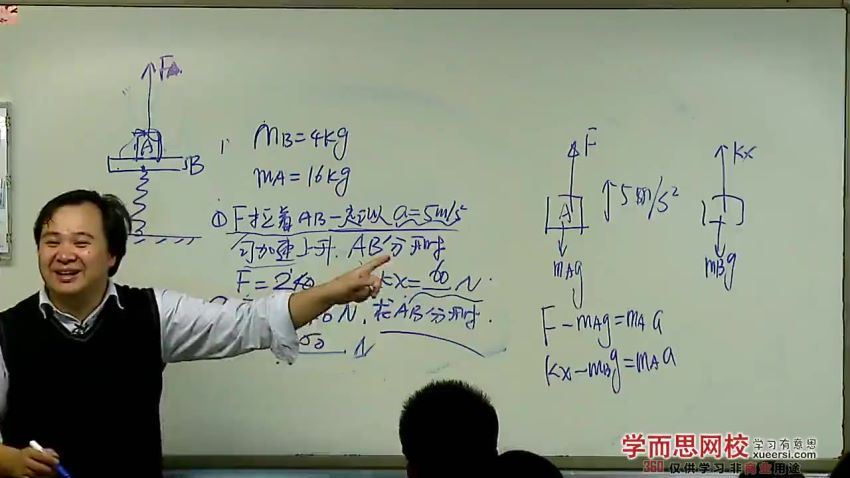 F
A
B
mB=4kg
mA=16kg
①F拉着AB一起以a=5m/s²
匀加速上升.AB分开时
F=240
kx=60N.
N,在AB分开时.
50 N
F
A
mAg
5m/s²
kx
mBg
F-mAg=mAa
kx-mBg=mAa
学而思网校 学习有意思
xueersi.com
360 仅供学习·非商业用途